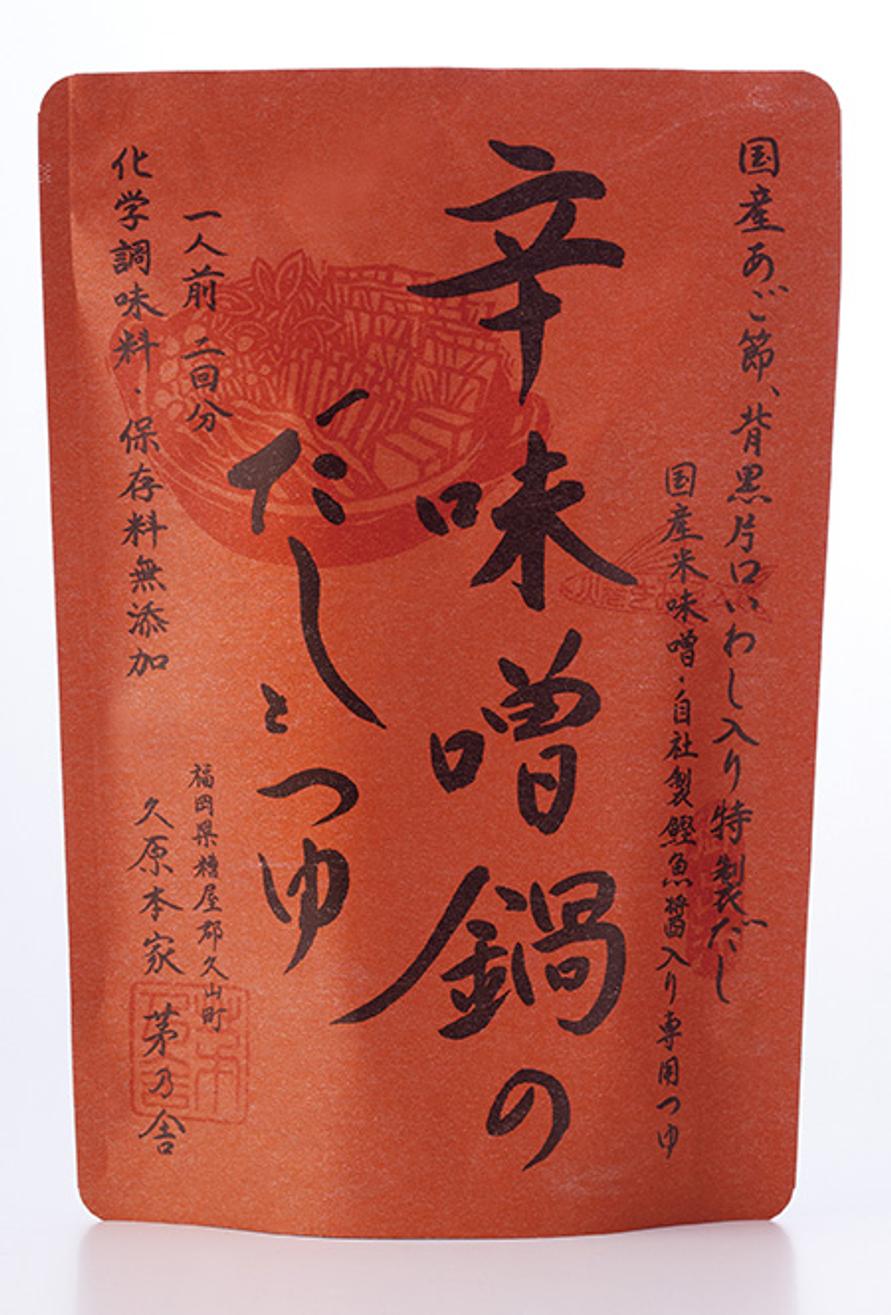 国産あご節、背黒片口いわし入り特製だし
国産米味噌・自社製鰹魚醤入り専用つゆ
辛味噌鍋の
だしとつゆ
一人前 二回分
化学調味料・保存料無添加
福岡県糟屋郡久山町
久原本家 茅乃舎